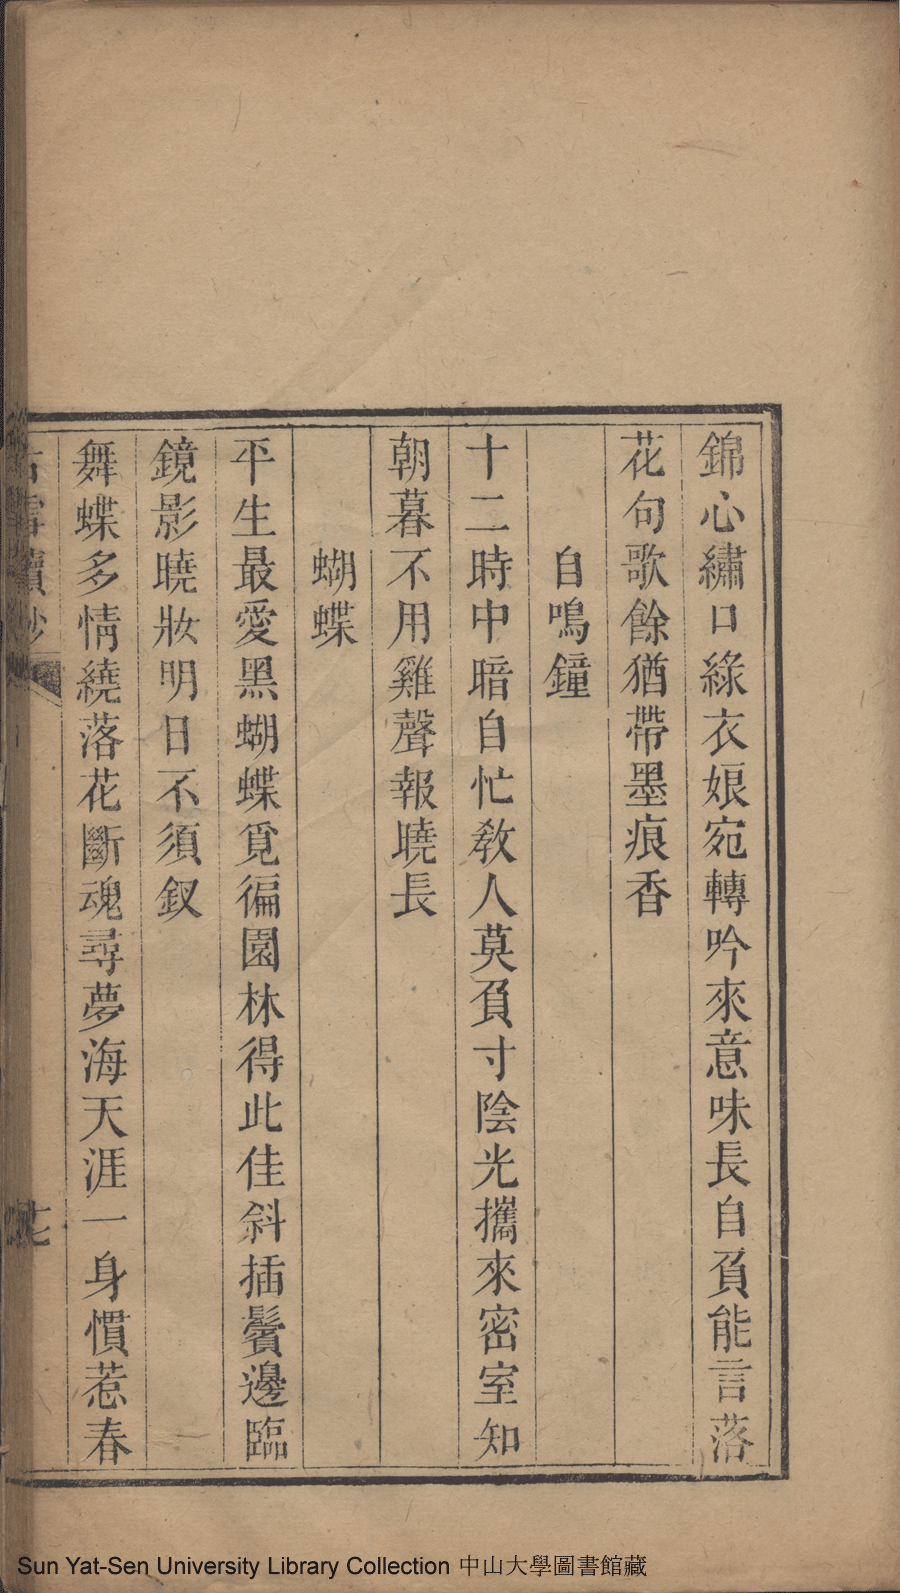 錦心繡口綠衣娘宛轉吟來意味長自負能言落
花句歌餘猶帶墨痕香
自鳴鐘
十二時中暗自忙敎人莫負寸陰光攜來密室知
朝暮不用雞聲報曉長
蝴蝶
平生最愛黑蝴蝶覓徧園林得此佳斜插鬢邊臨
鏡影曉妝明日不須釵
舞蝶多情繞落花斷魂尋夢海天涯一身慣惹春
Sun Yat-Sen University Library Collection 中山大學圖書館藏